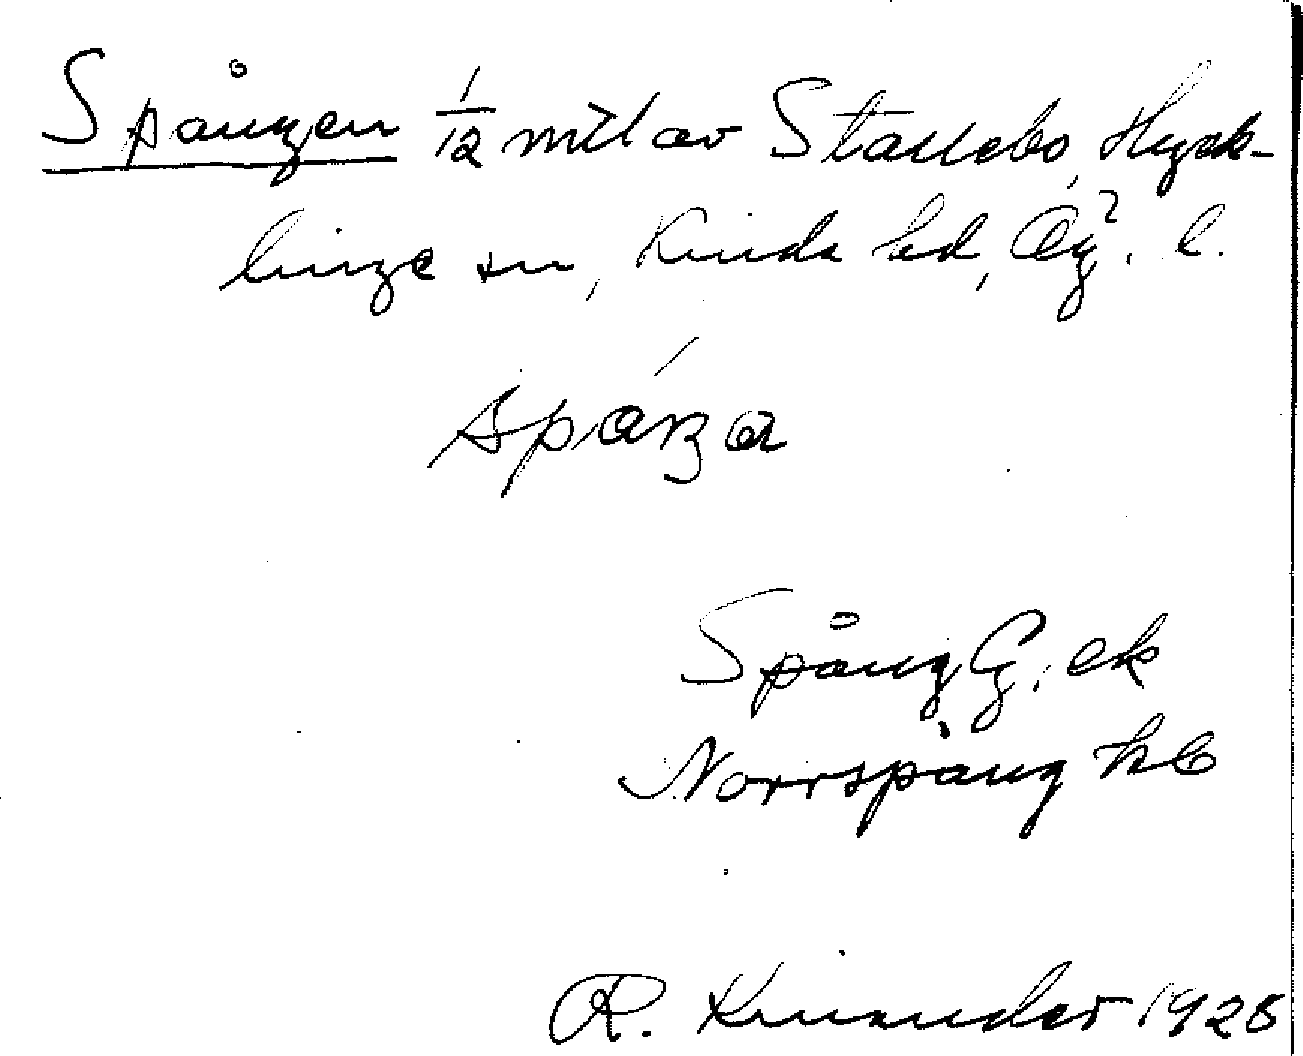 Spången 1/12 mil av Stallebo, Hyck-
linge sn, Kinda hd, Ög. l.
Spång G. ek
Norrspång hb
R. Kinander 1928